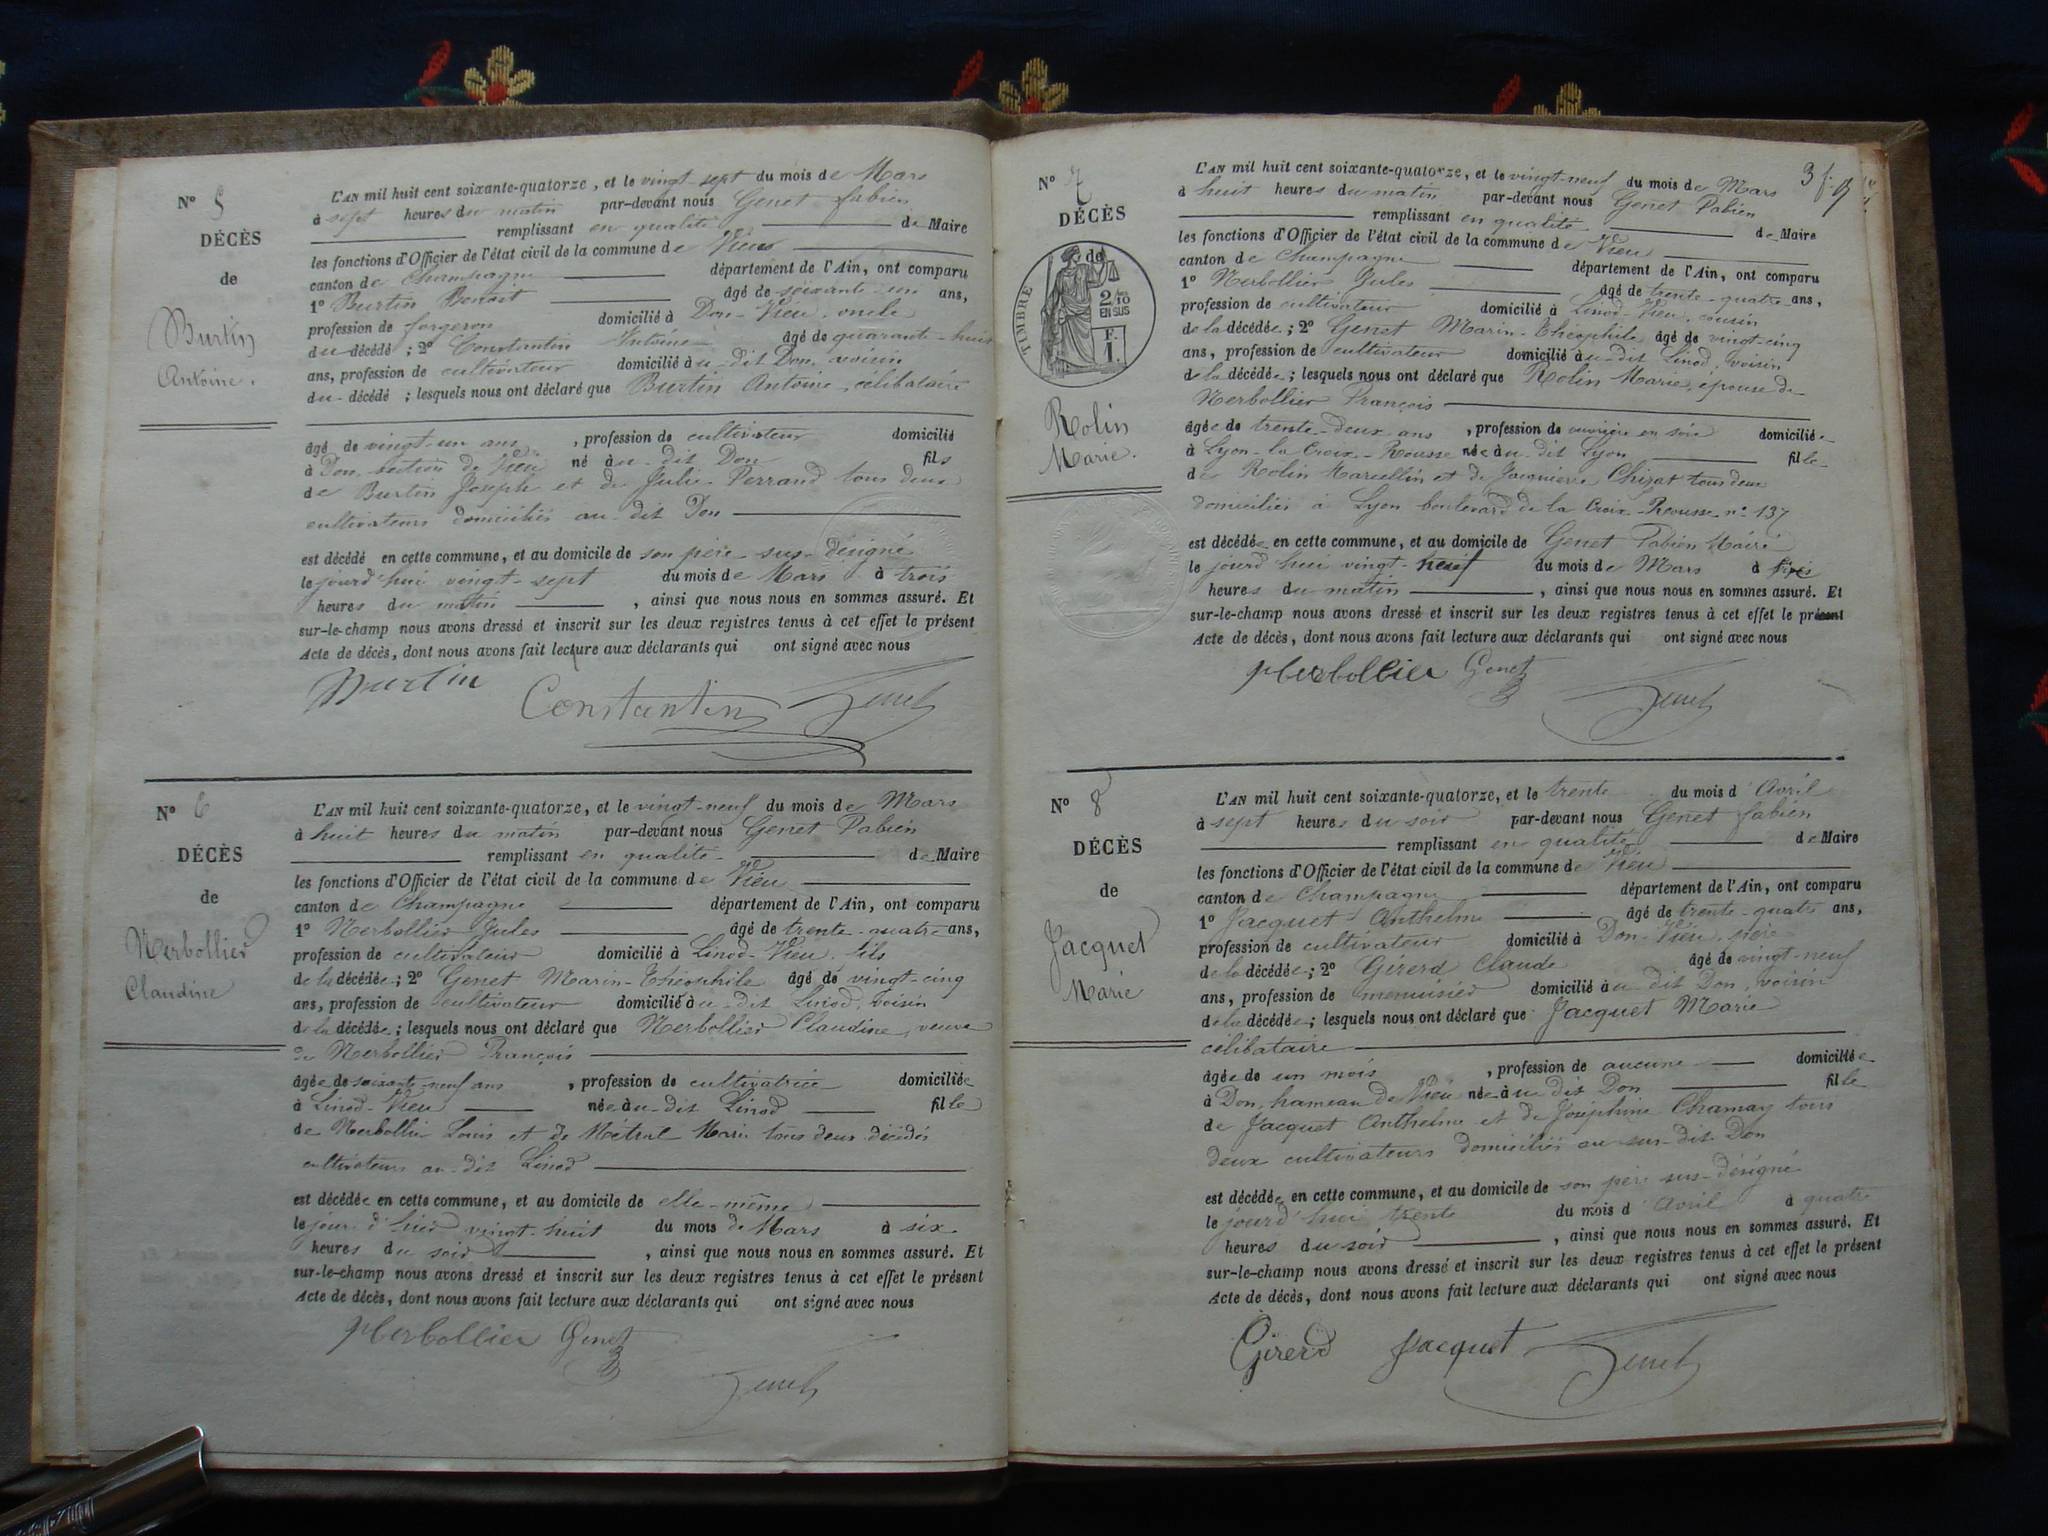 N° 5
DÉCÈS
de
Burtin
Antoine.
L'AN mil huit cent soixante-quatorze, et le vingt-sept du mois de Mars
à sept heures du matin par-devant nous Genet fabien
remplissant en qualité de Maire
les fonctions d'Officier de l'état civil de la commune de Vieu
canton de Champagne département de l'Ain, ont comparu
1° Burtin Benoit âgé de soixante un ans,
profession de forgeron domicilié à Don-Vieu, oncle
du décédé ; 2° Constantin Antoine âgé de quarante-huit
ans, profession de cultivateur domicilié au-dit Don, voisin
du-décédé ; lesquels nous ont déclaré que Burtin Antoine, célibataire
âgé de vingt-un ans , profession de cultivateur domicilié
à Don, section de Vieu né au-dit Don fils
de Burtin Joseph et de Julie Perrand tous deux
cultivateurs domiciliés au-dit Don
est décédé en cette commune, et au domicile de son père sus-désigné
le jourd'hui vingt-sept du mois de Mars à trois
heures du matin , ainsi que nous nous en sommes assuré. Et
sur-le-champ nous avons dressé et inscrit sur les deux registres tenus à cet effet le présent
Acte de décès, dont nous avons fait lecture aux déclarants qui ont signé avec nous
Burtin Constantin Genet
N° 6
DÉCÈS
de
Nerbollier
Claudine
L'AN mil huit cent soixante-quatorze, et le vingt-neuf du mois de Mars
à huit heures du matin par-devant nous Genet Fabien
remplissant en qualité de Maire
les fonctions d'Officier de l'état civil de la commune de Vieu
canton de Champagne département de l'Ain, ont comparu
1° Nerbollier Jules âgé de trente-quatre ans,
profession de cultivateur domicilié à Linod-Vieu, fils
de la décédée ; 2° Genet Marin-Théophile âgé de vingt-cinq
ans, profession de cultivateur domicilié au-dit Linod, voisin
de la décédée ; lesquels nous ont déclaré que Nerbollier Claudine, veuve
de Nerbollier François
âgée de soixante-neuf ans , profession de cultivatrice domiciliée
à Linod-Vieu née au-dit Linod fille
de Nerbollier Louis et de Métral Marie tous deux décédés
cultivateurs au-dit Linod
est décédée en cette commune, et au domicile de elle-même
le jour d'hier vingt-huit du mois de Mars à six
heures du soir , ainsi que nous nous en sommes assuré. Et
sur-le-champ nous avons dressé et inscrit sur les deux registres tenus à cet effet le présent
Acte de décès, dont nous avons fait lecture aux déclarants qui ont signé avec nous
Nerbollier Genet
Genet
3 f.
N° 7
DÉCÈS
de
TIMBRE
2/10
EN SUS
F.
1.
Rolin
Marie.
L'AN mil huit cent soixante-quatorze, et le vingt-neuf du mois de Mars
à huit heures du matin par-devant nous Genet Fabien
remplissant en qualité de Maire
les fonctions d'Officier de l'état civil de la commune de Vieu
canton de Champagne département de l'Ain, ont comparu
1° Nerbollier Jules âgé de trente-quatre ans,
profession de cultivateur domicilié à Linod-Vieu, cousin
de la décédée ; 2° Genet Marin-Théophile âgé de vingt-cinq
ans, profession de cultivateur domicilié au-dit Linod, voisin
de la décédée ; lesquels nous ont déclaré que Rolin Marie, épouse de
Nerbollier François
âgée de trente-deux ans , profession de ouvrière en soie domiciliée
à Lyon-la Croix-Rousse née au-dit Lyon fille
de Rolin Marcellin et de Jacquière Chizat tous deux
domiciliés à Lyon boulevard de la Croix-Rousse n° 137
est décédée en cette commune, et au domicile de Genet Fabien Maire
le jourd'hui vingt-neuf du mois de Mars à
heures du matin , ainsi que nous nous en sommes assuré. Et
sur-le-champ nous avons dressé et inscrit sur les deux registres tenus à cet effet le présent
Acte de décès, dont nous avons fait lecture aux déclarants qui ont signé avec nous
Nerbollier Genet Genet
N° 8
DÉCÈS
de
Jacquet
Marie
L'AN mil huit cent soixante-quatorze, et le trente du mois d'Avril
à sept heures du soir par-devant nous Genet fabien
remplissant en qualité de Maire
les fonctions d'Officier de l'état civil de la commune de Vieu
canton de Champagne département de l'Ain, ont comparu
1° Jacquet Anthelme âgé de trente-quatre ans,
profession de cultivateur domicilié à Don-Vieu, père
de la décédée ; 2° Girerd Claude âgé de vingt-neuf
ans, profession de menuisier domicilié au dit Don, voisin
de la décédée ; lesquels nous ont déclaré que Jacquet Marie
célibataire
âgée de un mois , profession de aucune domiciliée
à Don, hameau de Vieu née au dit Don fille
de Jacquet Anthelme et de Joséphine Chamay tous
deux cultivateurs domiciliés au sus-dit Don
est décédée en cette commune, et au domicile de son père sus-désigné
le jourd'hui trente du mois d'Avril à quatre
heures du soir , ainsi que nous nous en sommes assuré. Et
sur-le-champ nous avons dressé et inscrit sur les deux registres tenus à cet effet le présent
Acte de décès, dont nous avons fait lecture aux déclarants qui ont signé avec nous
Girerd Jacquet Genet